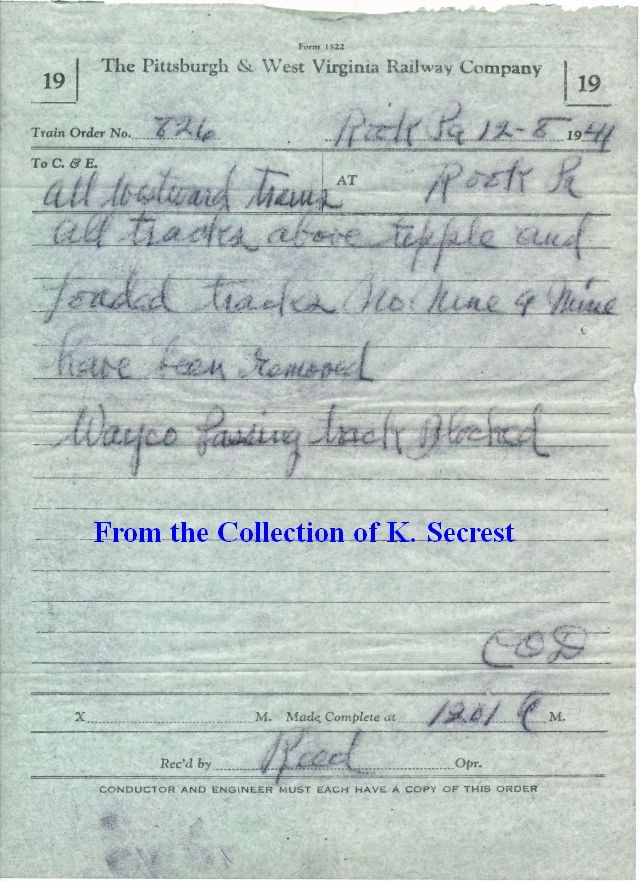 Form 1522
19 The Pittsburgh & West Virginia Railway Company 19
Train Order No. 826 Rook Pa 12-8 1941
To C. & E.
all westward trains AT Rook Pa
all tracks above tipple and
loaded tracks No. Nine Mine
have been removed
Wayco Passing track Blocked
From the Collection of K. Secrest
COD
X M. Made Complete at 1201 M.
Rec'd by Reed Opr.
CONDUCTOR AND ENGINEER MUST EACH HAVE A COPY OF THIS ORDER